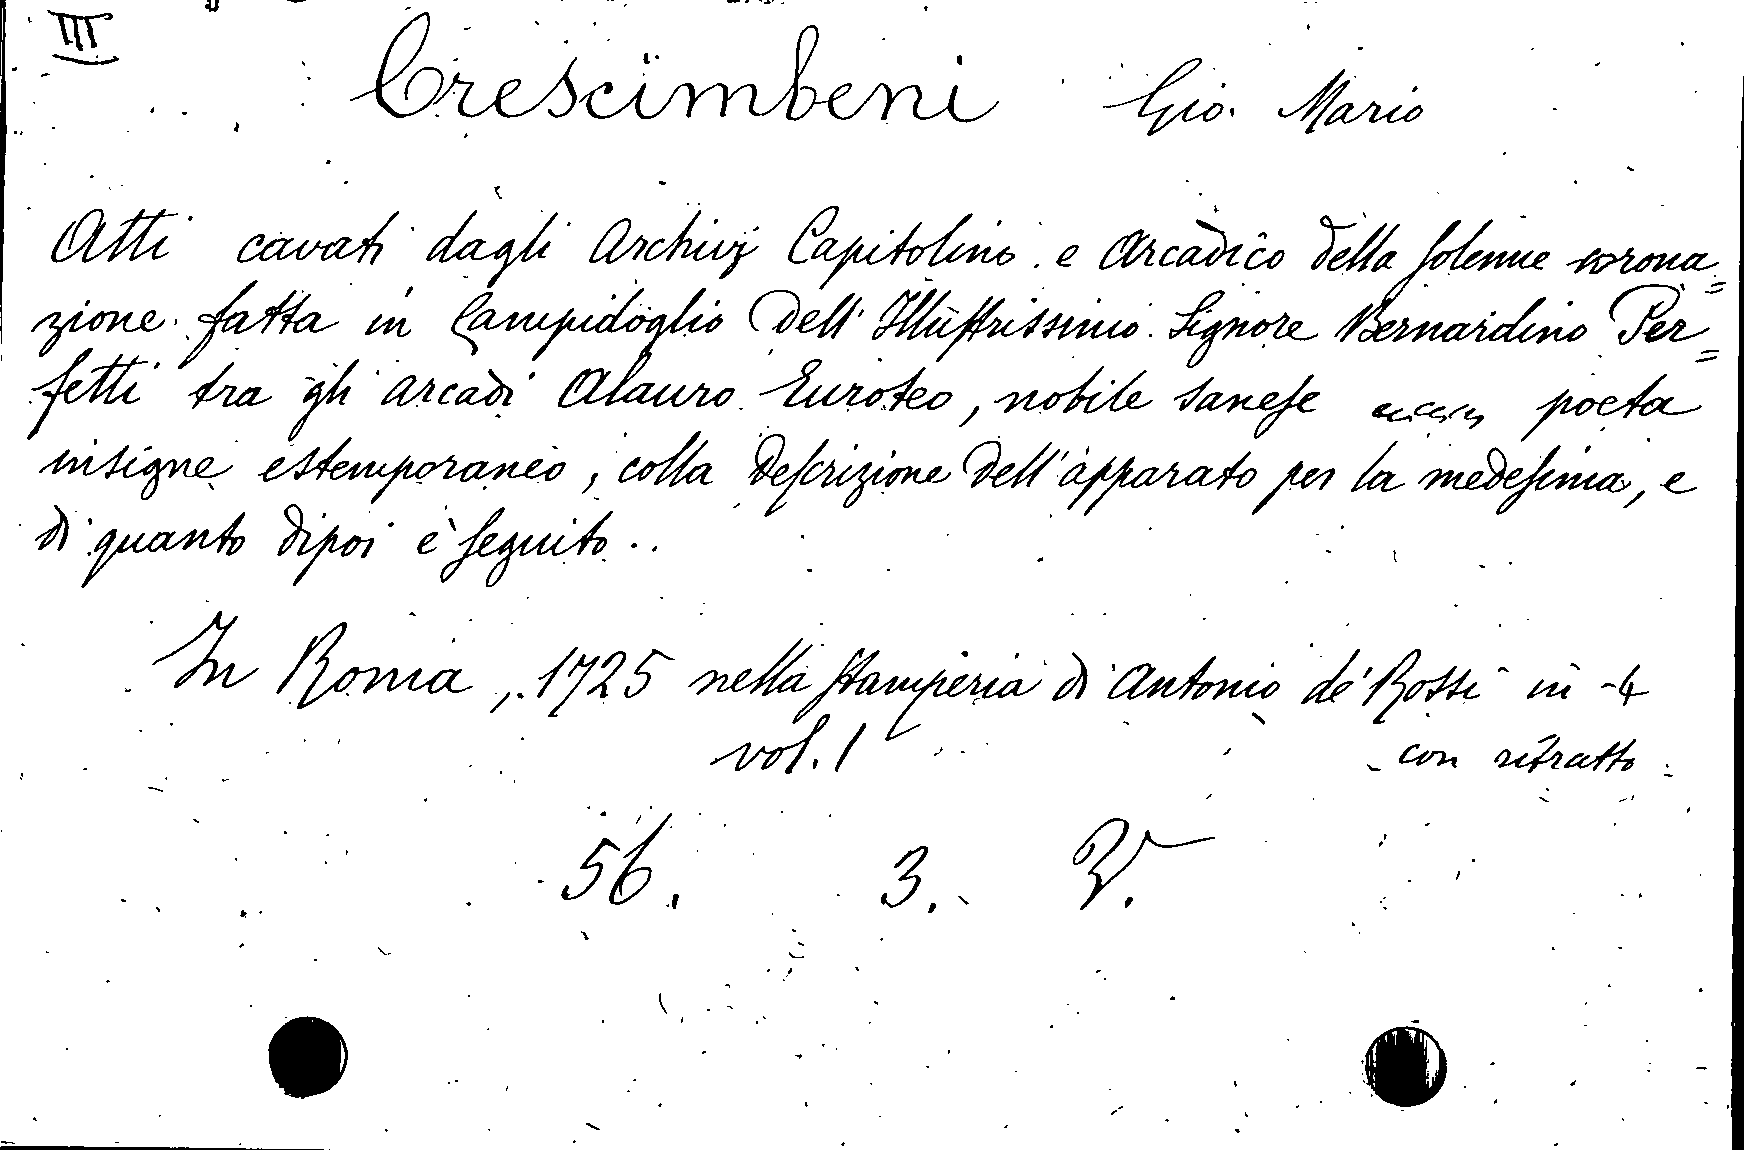 III
Crescimbeni Gio. Mario
Atti cavati dagli Archivj Capitolino e Arcadico della solenne corona=
zione fatta in Campidoglio dell' Illustrissimo Signore Bernardino Per=
fetti tra gli arcadi Alauro Euroteo, nobile sanese poeta
insigne estemporaneo, colla descrizione dell'apparato per la medesima, e
di quanto dipoi è seguito..
In Roma, 1725 nella stamperia di Antonio de' Rossi in-4
vol. 1 - con ritratto -
56. 3. V.